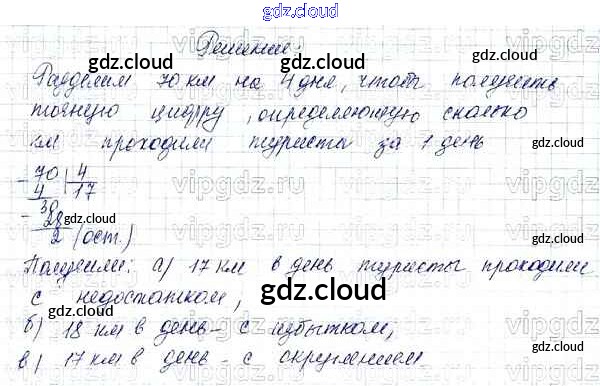 gdz.cloud
Решение:
Разделим 70 км на 4 дня, чтобы получить
точную цифру, определяющую сколько
км проходили туристы за 1 день
- 70 | 4
4 17
30
- 28
2 (ост.)
Получили: а) 17 км в день туристы проходили
с недостатком,
б) 18 км в день - с избытком;
в) 17 км в день - с округлением
gdz.cloud
gdz.cloud
gdz.cloud
gdz.cloud
gdz.cloud
gdz.cloud
gdz.cloud
gdz.cloud
vipgdz.ru
vipgdz.ru
vipgdz.ru